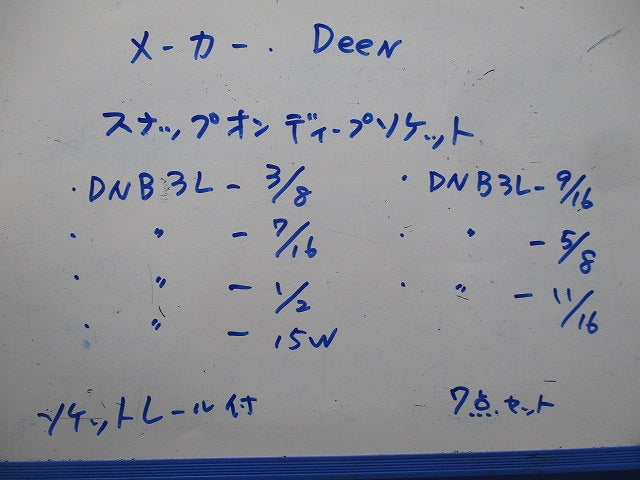 メーカー. Deen
スナップオンディープソケット
・DNB3L-3/8 ・DNB3L-9/16
・ 〃 -7/16 ・ 〃 -5/8
・ 〃 -1/2 ・ 〃 -11/16
・ 〃 -15W
ソケットレール付 7点セット